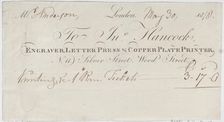 Mr Anderson London May 30, 18
To Jno. Hancock,
ENGRAVER, LETTER PRESS & COPPER PLATE PRINTER,
Silver Street, Wood Street
Printing 1 Rm Tickets 3. 17. 6